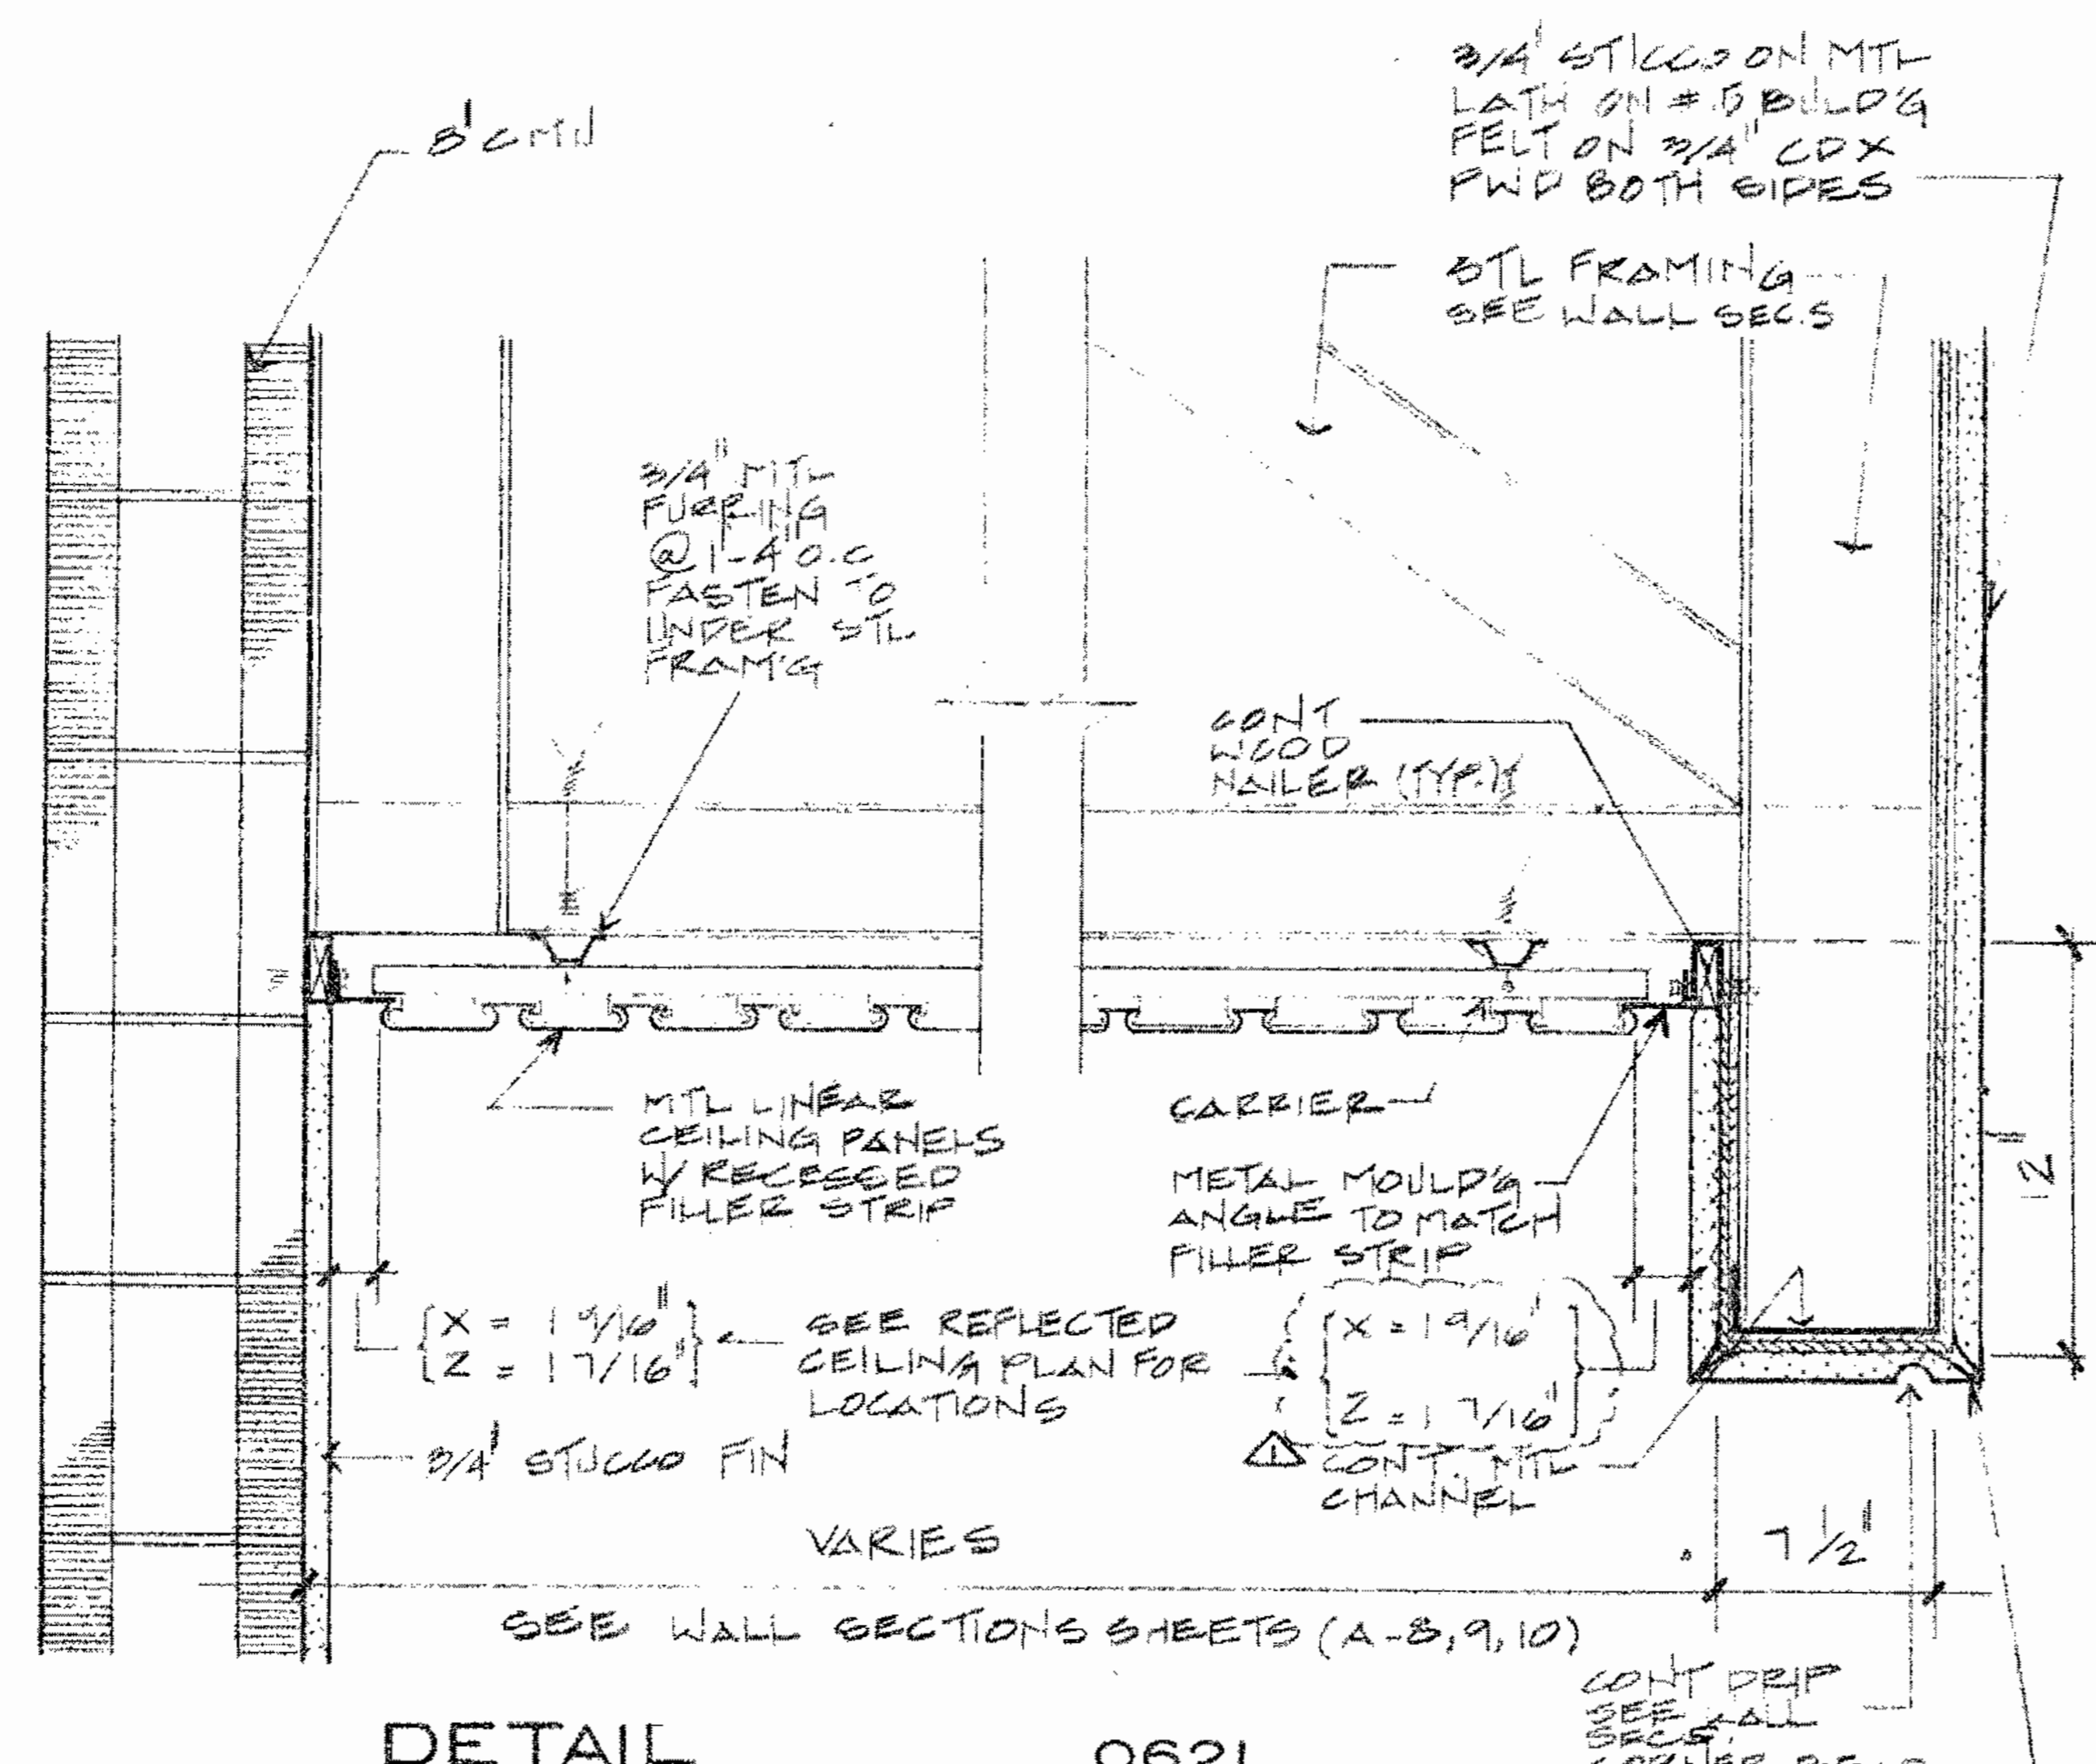 8" CMU
3/4" STUCCO ON MTL
LATH ON # BUILD'G
FELT ON 3/4" CDX
PWD BOTH SIDES
STL FRAMING
SEE WALL SEC.S
3/4" MTL
FURRING
@ 1'-4" O.C.
FASTEN TO
UNDER STL
FRAM'G
CONT
WOOD
NAILER (TYP.)
MTL LINEAR
CEILING PANELS
W/ RECESSED
FILLER STRIP
CARRIER
METAL MOULD'G
ANGLE TO MATCH
FILLER STRIP
X = 1 9/16"
Z = 1 7/16"
SEE REFLECTED
CEILING PLAN FOR
LOCATIONS
X = 1 9/16"
Z = 1 7/16"
3/4" STUCCO FIN
1
CONT. MTL
CHANNEL
12"
VARIES
7 1/2"
SEE WALL SECTIONS SHEETS (A-8,9,10)
CONT DRIP
SEE WALL
SECS.
CORNER BEAD
DETAIL
0621